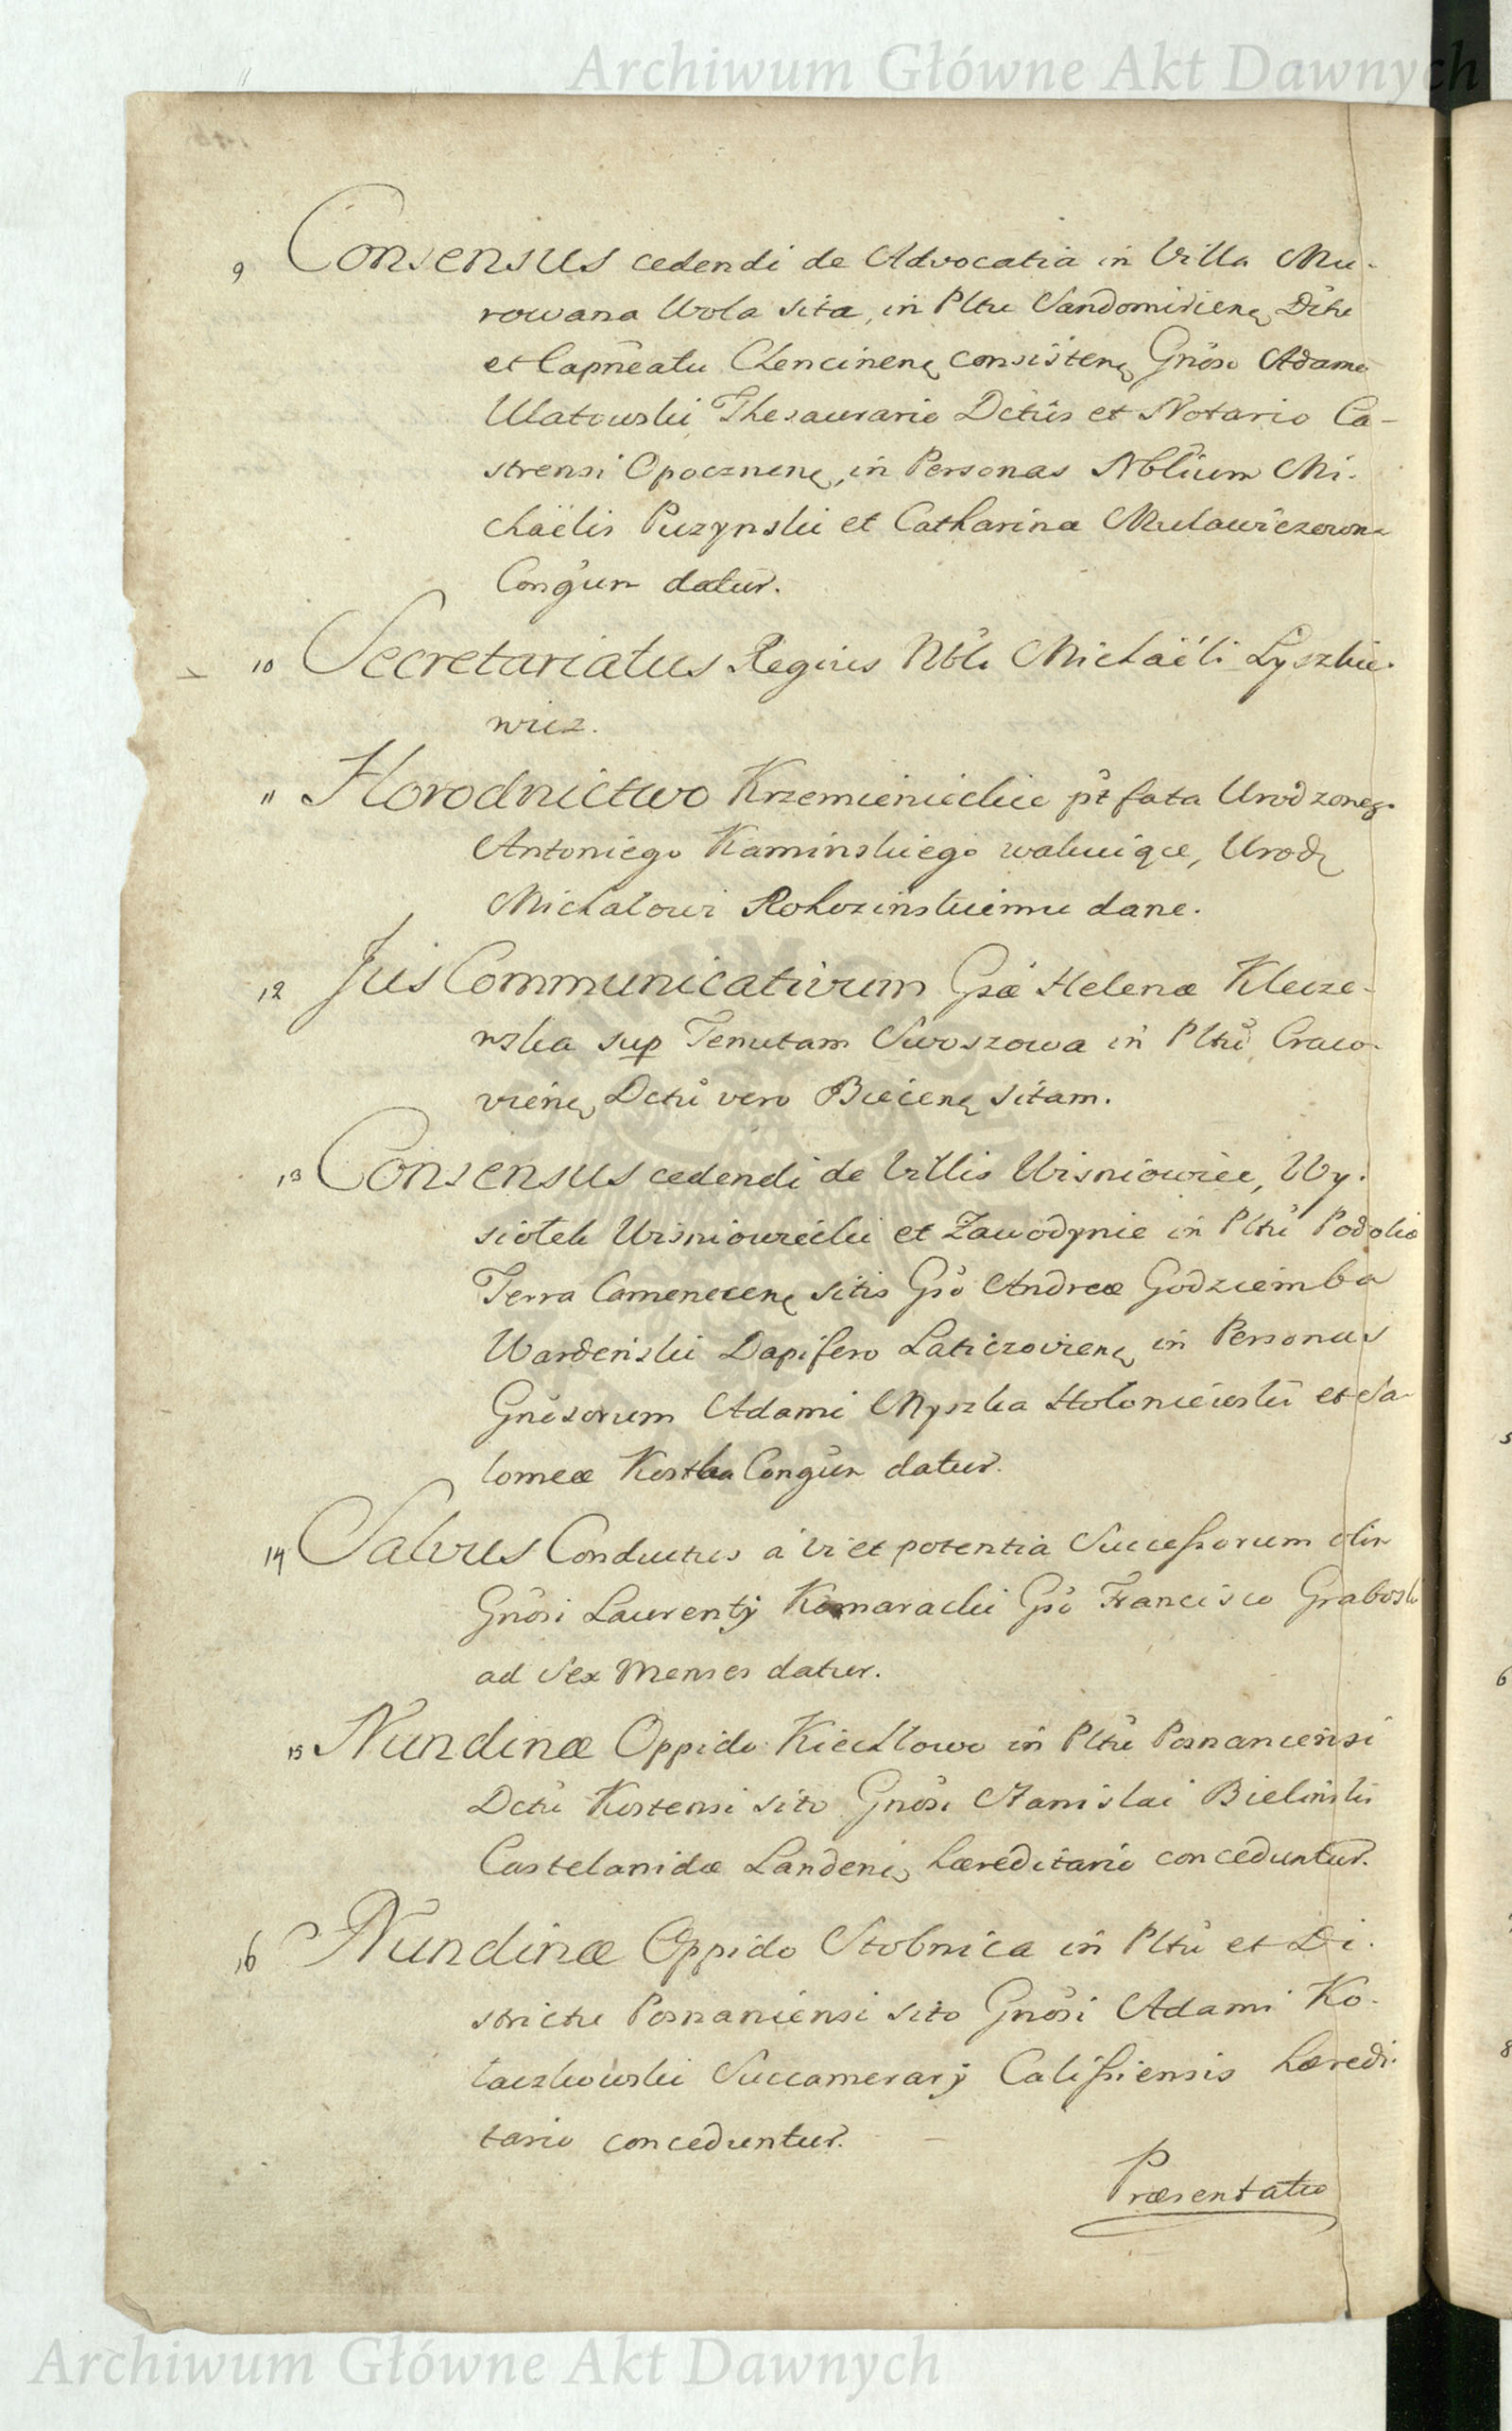 Archiwum Główne Akt Dawnych
9 Consensus cedendi de Advocatia in Villa Mu-
rowana Wola sita, in Pltu Sandomirien, Dctu
et Capneatu Chencinen, consisten, Gnoso Adamo
Ulatowski Thesaurario Dctus et Notario Ca-
strensi Opocznen, in Personas Nblium Mi-
chaëlis Puzynski et Catharina Mulawiczowna
Congum datur.
10 Secretariatus Regius Nbli Michaëli Łyszkie-
wicz.
11 Horodnictwo Krzemienieckie pt fata Urodzoneg
Antoniego Kaminskiego wakuiące, Urodz
Michałowi Rohozinskiemu dane.
12 Jus Communicativum Gsæ Helenæ Klecze-
wska sup Tenutam Swoszowa in Pltu Craco-
vien, Dctu vero Biecien, sitam.
13 Consensus cedendi de Villis Wisniowiec, Wy-
siołek Wisniowiecki et Zawodynie in Pltu Podolia
Terra Camenecen, sitis Gso Andreæ Godziemba
Wardenski Dapifero Laticzovien, in Personas
Gnosorum Adami Myszka Hołoniewski et Sa-
lomeæ Kostka Congum datur.
14 Salvus Conductus a vi et potentia Successorum olim
Gnosi Laurentÿ Komaracki Gso Francisco Grabosk
ad Sex Menses datur.
15 Nundinæ Oppido Kiebłowo in Pltu Posnaniensi
Dctu Kostensi sito Gnosi Stanislai Bielinski
Castelanidæ Landen, hæreditario conceduntur.
16 Nundinæ Oppido Stobnica in Pltu et Di-
strictu Posnaniensi sito Gnosi Adami Ko-
łaczkowski Succamerarÿ Calissiensis hæredi-
tario conceduntur.
Præsentatio
Archiwum Główne Akt Dawnych